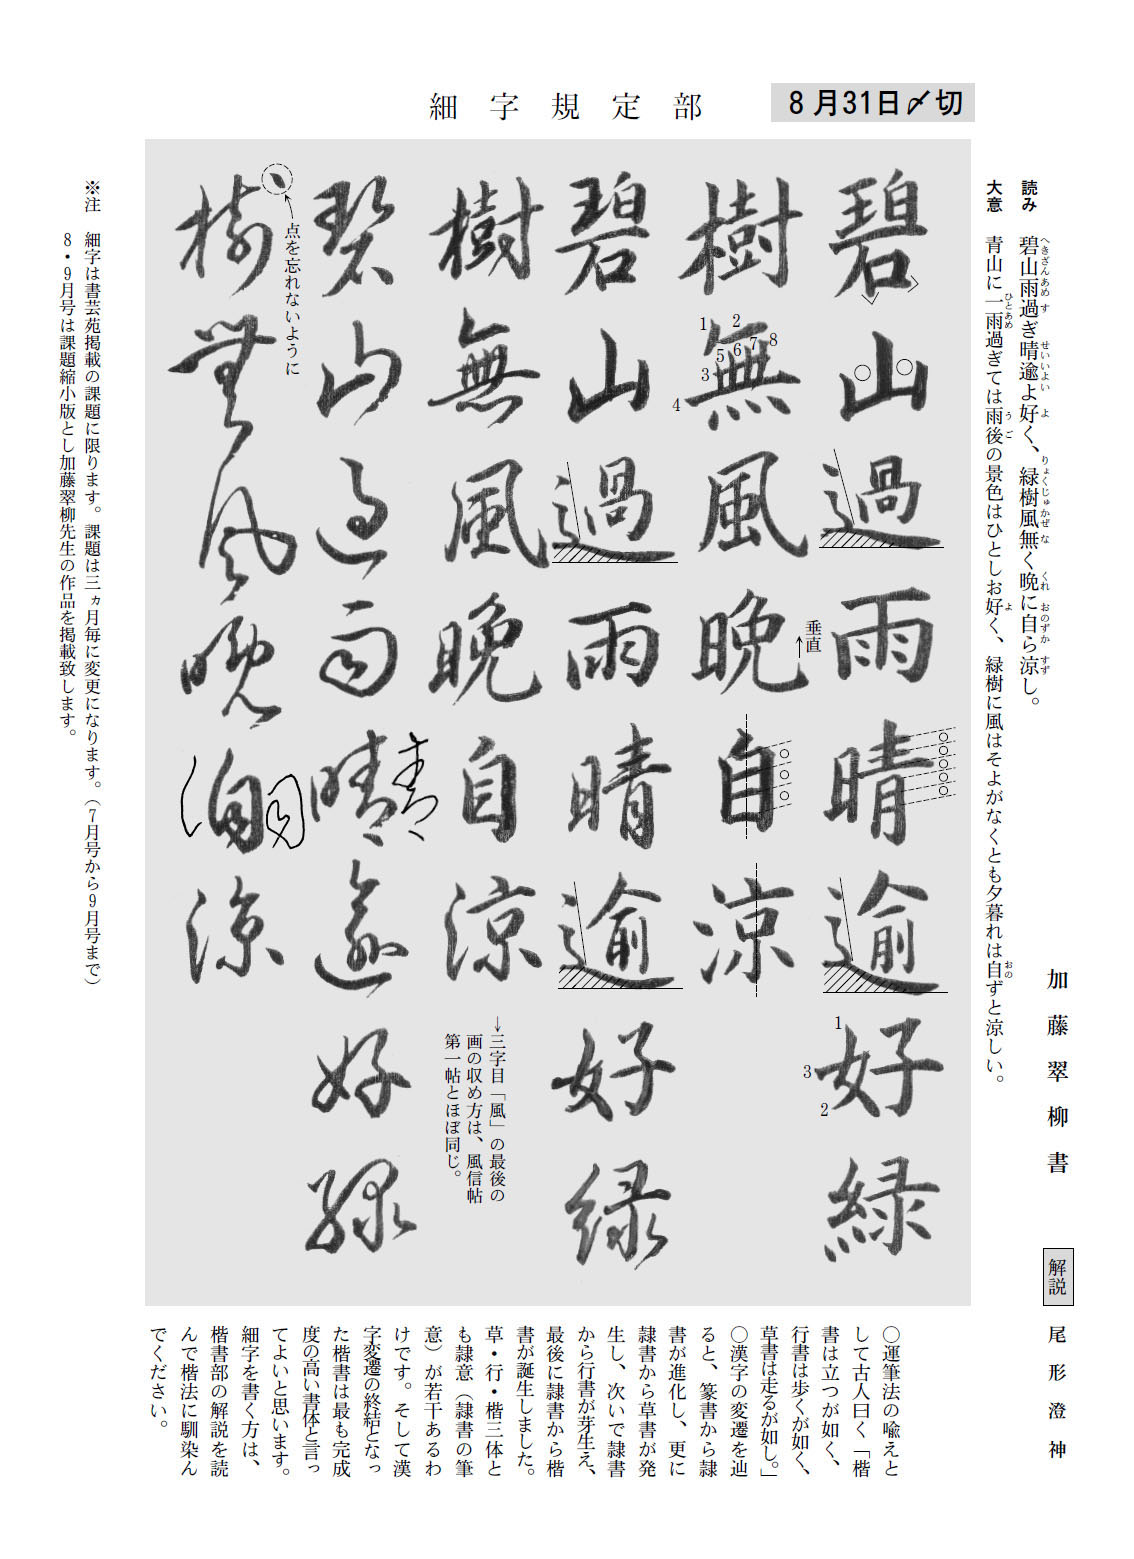 細字規定部
8月31日〆切
読み 碧山雨過ぎ晴逾よ好く、緑樹風無く晩に自ら涼し。
へきざんあめ す せいいよい よ りょくじゅかぜ な くれ おのずか すず
大意 青山に一雨過ぎては雨後の景色はひとしお好く、緑樹に風はそよがなくとも夕暮れは自ずと涼しい。
ひとあめ うご よ おの
加藤翠柳書
碧山過雨晴逾好緑
1
3
2
樹無風晩自涼
1
2
3
4
5
6
7
8
垂直
碧山過雨晴逾好緑
樹無風晩自涼
↓三字目「風」の最後の
画の収め方は、風信帖
第一帖とほぼ同じ。
碧山過雨晴逾好緑
樹無風晩自涼
点を忘れないように
※注 細字は書芸苑掲載の課題に限ります。課題は三ヵ月毎に変更になります。（7月号から9月号まで）
8・9月号は課題縮小版とし加藤翠柳先生の作品を掲載致します。
解説 尾形澄神
〇運筆法の喩えと
して古人曰く「楷
書は立つが如く、
行書は歩くが如く、
草書は走るが如し。」
〇漢字の変遷を辿
ると、篆書から隷
書が進化し、更に
隷書から草書が発
生し、次いで隷書
から行書が芽生え、
最後に隷書から楷
書が誕生しました。
草・行・楷三体と
も隷意（隷書の筆
意）が若干あるわ
けです。そして漢
字変遷の終結となっ
た楷書は最も完成
度の高い書体と言っ
てよいと思います。
細字を書く方は、
楷書部の解説を読
んで楷法に馴染ん
でください。